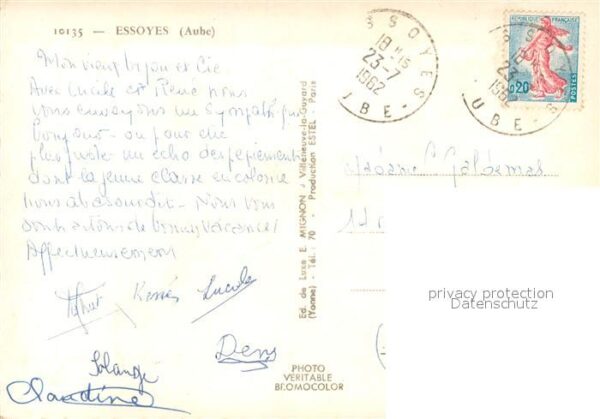 10135 — ESSOYES (Aube)
Mon vieux et Cie
Avec Lucile et René nous
vous envoyons un sympathique
bonjour - ou pour être
plus juste un écho des pépiements
dont la jeune classe en colonie
nous abasourdit - Nous vous
souhaitons de bonnes vacances
Affectueusement
René Lucile
Solange
Denis
Claudine
Ed. de Luxe E. MIGNON à Villeneuve-la-Guyard
(Yonne) - Tél. : 70 - Production ESTEL - Paris
PHOTO
VERITABLE
BROMOCOLOR
ESSOYES
18 H 15
23-7
1962
AUBE
REPUBLIQUE FRANÇAISE
0,20
POSTES
ESSOYES
18 H
23
1962
AUBE
Madame
privacy protection
Datenschutz